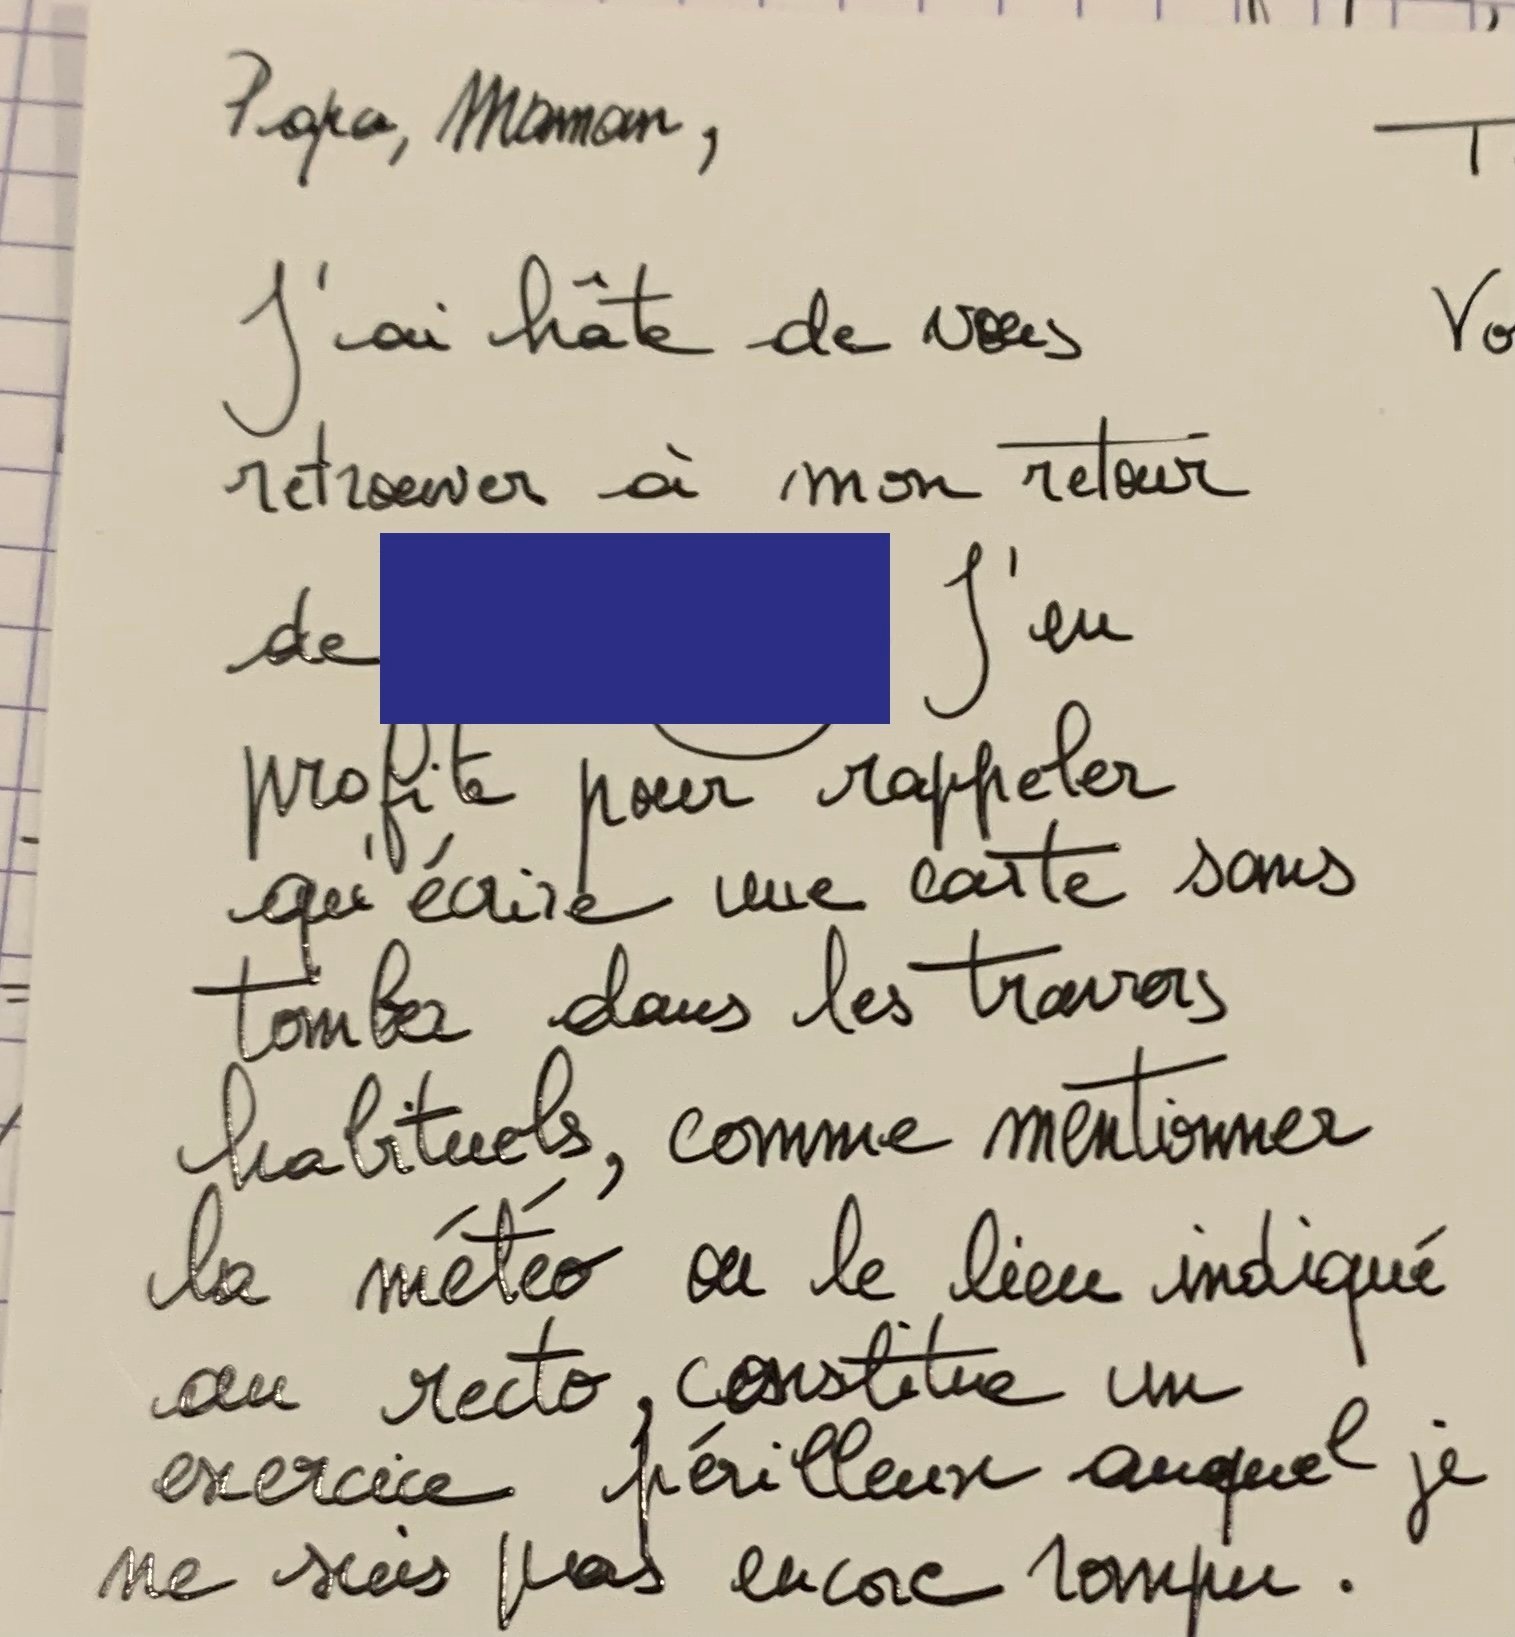 Papa, Maman,
J'ai hâte de vous
retrouver à mon retour
de J'en
profite pour rappeler
qu'écrire une carte sans
tomber dans les travers
habituels, comme mentionner
la météo ou le lieu indiqué
au recto, constitue un
exercice périlleux auquel je
ne suis pas encore rompu.
Vo